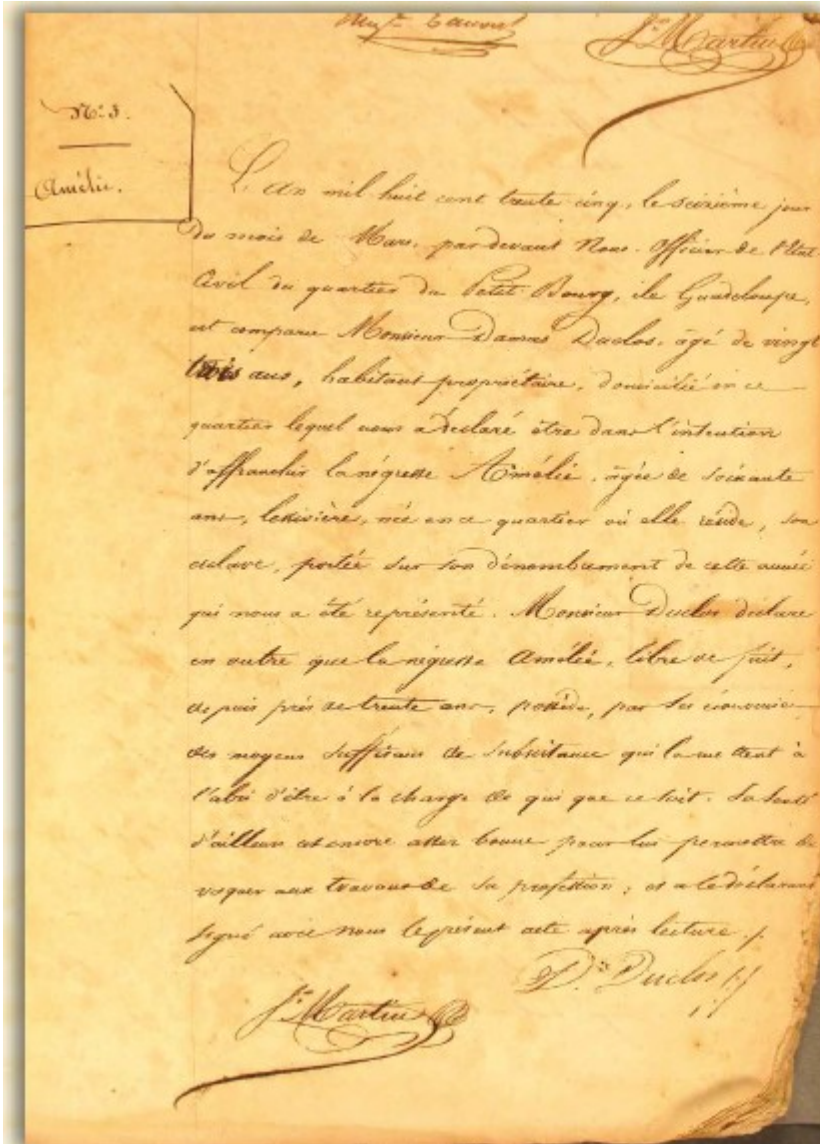 J.n Martin
N.o 3.
Amélie.
L'an mil huit cent trente cinq, le seizième jour
du mois de Mars, par devant Nous, Officier de l'Etat
Civil du quartier du Petit Bourg, île Guadeloupe,
est comparu Monsieur Damas Duclos, âgé de vingt
trois ans, habitant propriétaire, domicilié en ce
quartier lequel nous a déclaré être dans l'intention
d'affranchir la négresse Amélie, âgée de soixante
ans, lessivière, née en ce quartier où elle réside, son
esclave, portée sur son dénombrement de cette année
qui nous a été représenté. Monsieur Duclos déclare
en outre que la négresse Amélie, libre de fait,
depuis près de trente ans, possède, par ses économies
des moyens suffisans de subsistance qui la mettent à
l'abri d'être à la charge de qui que ce soit. Sa santé
d'ailleurs est encore assez bonne pour lui permettre de
vaquer aux travaux de sa profession; et a le déclarant
signé avec nous le présent acte après lecture ./.
D.as Duclos
J.n Martin